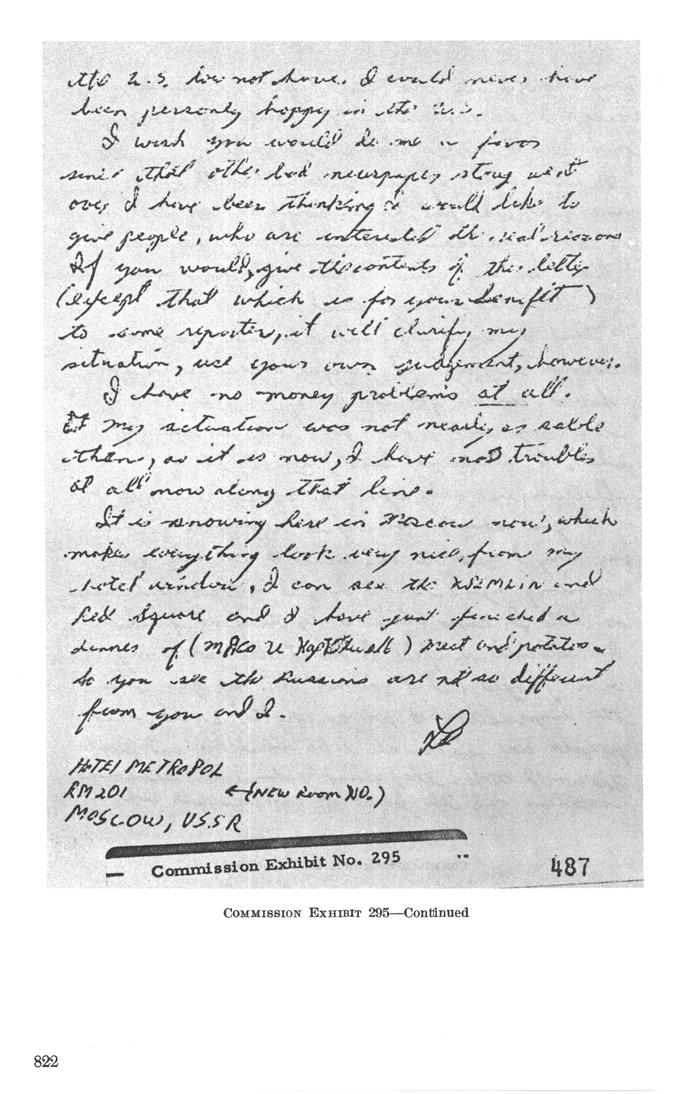 the U.S. do not have. I could never have
been personly happy in the U.S.
I wish you would do me a favor
since that other bad newspaper story went
over I have been thinking I would like to
give people, who are interested the real reasons
If you would, give the contents of this letter
(except that which is for your benifit)
to some reporter, it will clarify my
situation, use your own judgement, however.
I have no money problems at all.
My situation was not nearly as stable
then, as it is now, I have no troubles
at all now along that line.
It is snowing here in Moscow now, which
makes everything look very nice, from my
hotel window, I can see the Kremlin and
Red Square and I have just finished a
dinner of (мясо и картошка) meat and potatoes.
So you see the Russians are not so different
from you and I.
Lee
HOTEL METROPOL
RM 201 ←(NEW ROOM NO.)
MOSCOW, USSR
Commission Exhibit No. 295
487
COMMISSION EXHIBIT 295—Continued
822